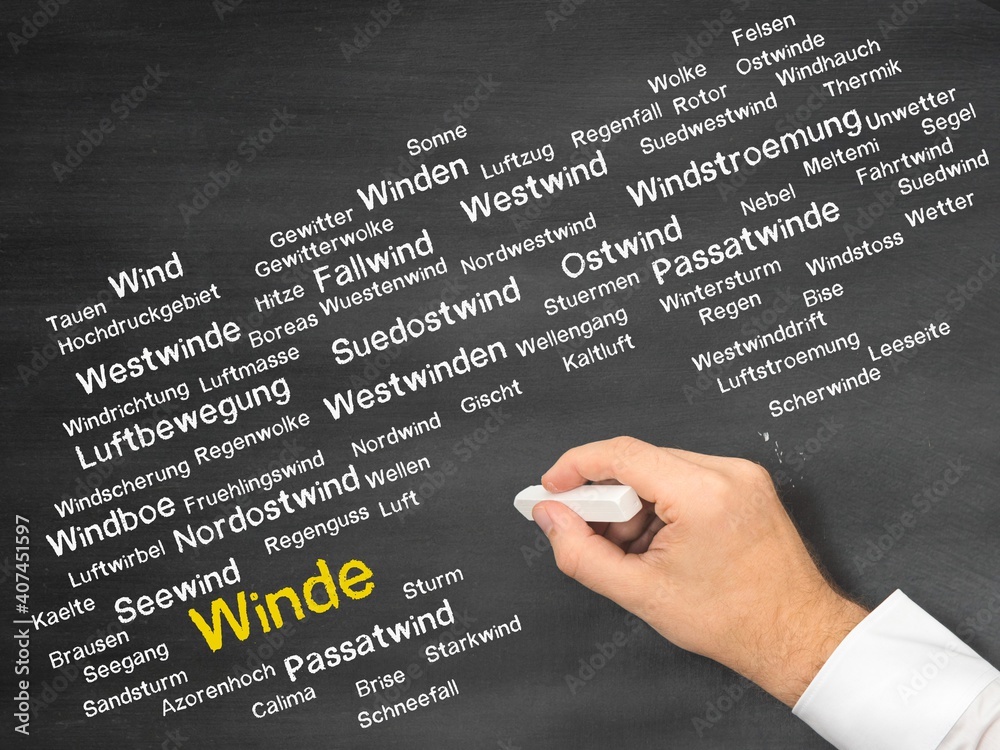 Felsen
Ostwinde
Wolke
Windhauch
Rotor
Thermik
Sonne
Regenfall
Suedwestwind
Unwetter
Winden
Luftzug
Westwind
Windstroemung
Segel
Meltemi
Fahrtwind
Gewitter
Gewitterwolke
Nebel
Suedwind
Wind
Fallwind
Nordwestwind
Ostwind
Passatwinde
Wetter
Tauen
Hochdruckgebiet
Hitze
Wuestenwind
Stuermen
Wintersturm
Windstoss
Westwinde
Boreas
Suedostwind
Wellengang
Regen
Bise
Windrichtung
Luftmasse
Westwinden
Kaltluft
Westwinddrift
Luftstroemung
Leeseite
Luftbewegung
Gischt
Scherwinde
Windscherung
Regenwolke
Nordwind
Windboe
Fruehlingswind
Nordostwind
Wellen
Luftwirbel
Regenguss
Luft
Kaelte
Seewind
Winde
Sturm
Brausen
Seegang
Passatwind
Starkwind
Sandsturm
Azorenhoch
Calima
Brise
Schneefall
Adobe Stock | #407451597